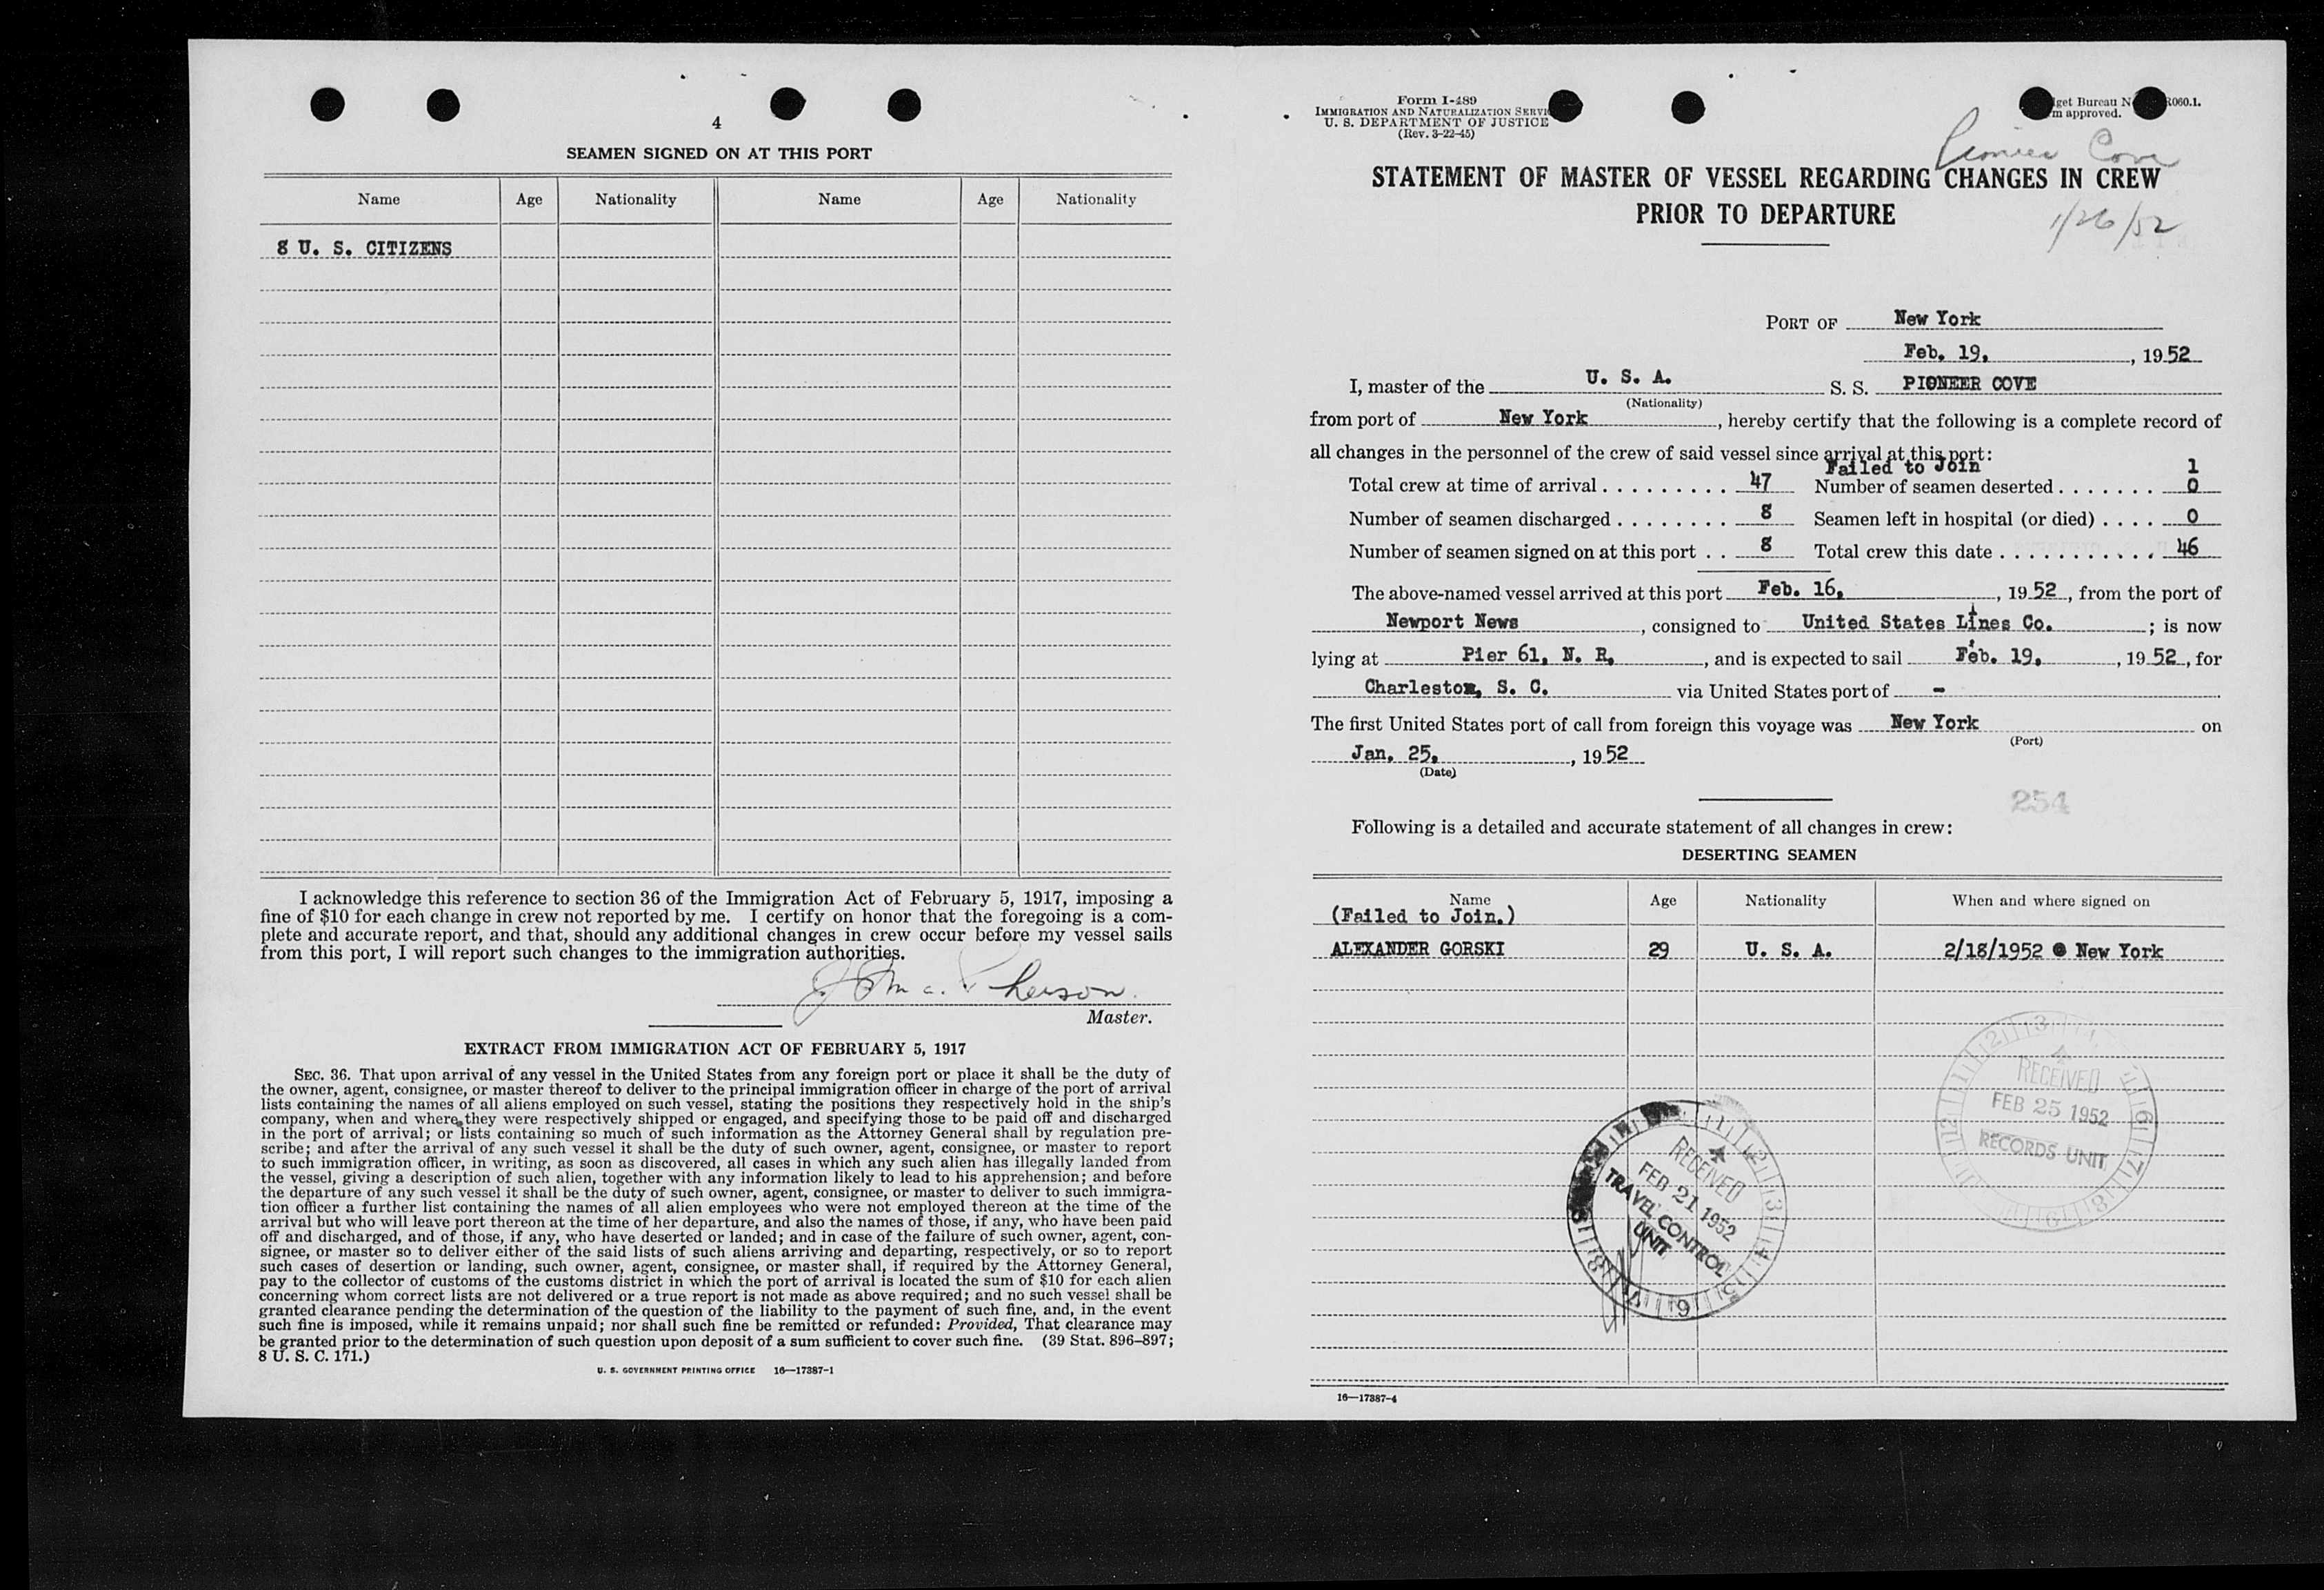 4
SEAMEN SIGNED ON AT THIS PORT
Name Age Nationality Name Age Nationality
8 U. S. CITIZENS
I acknowledge this reference to section 36 of the Immigration Act of February 5, 1917, imposing a
fine of $10 for each change in crew not reported by me. I certify on honor that the foregoing is a com-
plete and accurate report, and that, should any additional changes in crew occur before my vessel sails
from this port, I will report such changes to the immigration authorities.
Master.
EXTRACT FROM IMMIGRATION ACT OF FEBRUARY 5, 1917
SEC. 36. That upon arrival of any vessel in the United States from any foreign port or place it shall be the duty of
the owner, agent, consignee, or master thereof to deliver to the principal immigration officer in charge of the port of arrival
lists containing the names of all aliens employed on such vessel, stating the positions they respectively hold in the ship's
company, when and where they were respectively shipped or engaged, and specifying those to be paid off and discharged
in the port of arrival; or lists containing so much of such information as the Attorney General shall by regulation pre-
scribe; and after the arrival of any such vessel it shall be the duty of such owner, agent, consignee, or master to report
to such immigration officer, in writing, as soon as discovered, all cases in which any such alien has illegally landed from
the vessel, giving a description of such alien, together with any information likely to lead to his apprehension; and before
the departure of any such vessel it shall be the duty of such owner, agent, consignee, or master to deliver to such immigra-
tion officer a further list containing the names of all alien employees who were not employed thereon at the time of the
arrival but who will leave port thereon at the time of her departure, and also the names of those, if any, who have been paid
off and discharged, and of those, if any, who have deserted or landed; and in case of the failure of such owner, agent, con-
signee, or master so to deliver either of the said lists of such aliens arriving and departing, respectively, or so to report
such cases of desertion or landing, such owner, agent, consignee, or master shall, if required by the Attorney General,
pay to the collector of customs of the customs district in which the port of arrival is located the sum of $10 for each alien
concerning whom correct lists are not delivered or a true report is not made as above required; and no such vessel shall be
granted clearance pending the determination of the question of the liability to the payment of such fine, and, in the event
such fine is imposed, while it remains unpaid; nor shall such fine be remitted or refunded: Provided, That clearance may
be granted prior to the determination of such question upon deposit of a sum sufficient to cover such fine. (39 Stat. 896–897;
8 U. S. C. 171.)
U. S. GOVERNMENT PRINTING OFFICE 16—17387-1
Form I-489
IMMIGRATION AND NATURALIZATION
U. S. DEPARTMENT OF JUSTICE
(Rev. 3-22-45)
Bureau
approved.
Pioneer Cove
STATEMENT OF MASTER OF VESSEL REGARDING CHANGES IN CREW
PRIOR TO DEPARTURE
1/26/52
PORT OF New York
Feb. 19, , 1952
I, master of the U. S. A. S. S. PIONEER COVE
(Nationality)
from port of New York , hereby certify that the following is a complete record of
all changes in the personnel of the crew of said vessel since arrival at this port:
Failed to Join 1
Total crew at time of arrival . . . . . . . . . 47 Number of seamen deserted . . . . . . . 0
Number of seamen discharged . . . . . . . . 8 Seamen left in hospital (or died) . . . . 0
Number of seamen signed on at this port . . 8 Total crew this date . . . . . . . . . . . 46
The above-named vessel arrived at this port Feb. 16, , 1952 , from the port of
Newport News , consigned to United States Lines Co. ; is now
lying at Pier 61, N. R. , and is expected to sail Feb. 19, , 1952 , for
Charleston, S. C. via United States port of -
The first United States port of call from foreign this voyage was New York on
(Port)
Jan. 25, , 1952
(Date)
254
Following is a detailed and accurate statement of all changes in crew:
DESERTING SEAMEN
Name Age Nationality When and where signed on
(Failed to Join.)
ALEXANDER GORSKI 29 U. S. A. 2/18/1952 @ New York
RECEIVED
FEB 25 1952
RECORDS UNIT
RECEIVED
FEB 21 1952
TRAVEL CONTROL
UNIT
16—17387-4